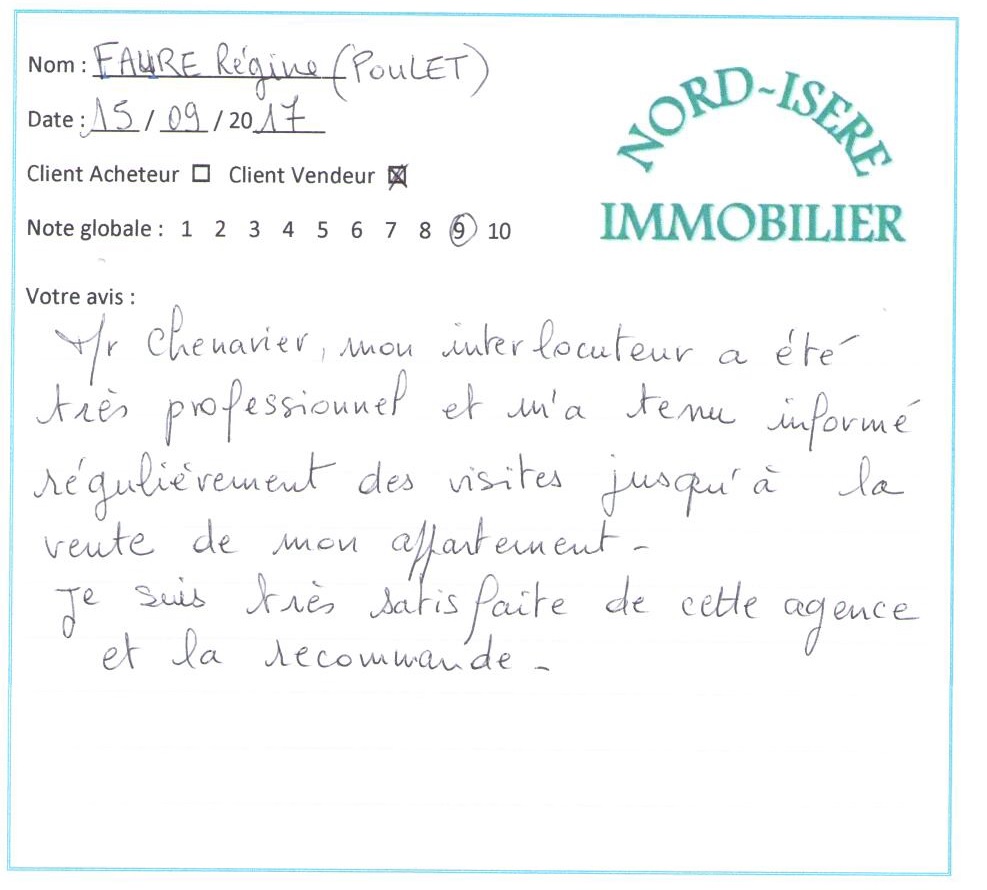 Nom : FAURE Régine (POULET)
Date : 15 / 09 / 2017
Client Acheteur ☐ Client Vendeur ☒
Note globale : 1 2 3 4 5 6 7 8 9 10
NORD-ISERE
IMMOBILIER
Votre avis :
Mr Chenavier, mon interlocuteur a été
très professionnel et m'a tenu informé
régulièrement des visites jusqu'à la
vente de mon appartement -
Je suis très satisfaite de cette agence
et la recommande -